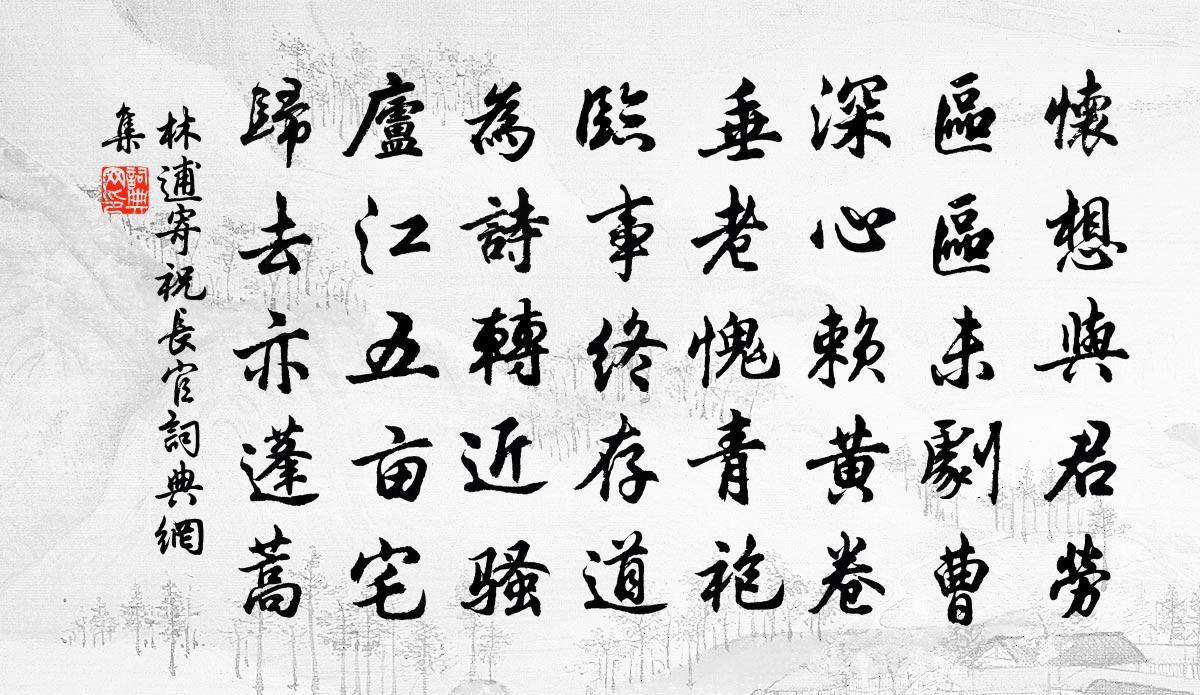 懷想與君勞
區區未劇曹
深心賴黃卷
垂老愧青袍
臨事終存道
為詩轉近騷
廬江五亩宅
歸去亦蓬蒿
林逋寄祝長官詞典網
集
詞典
网印